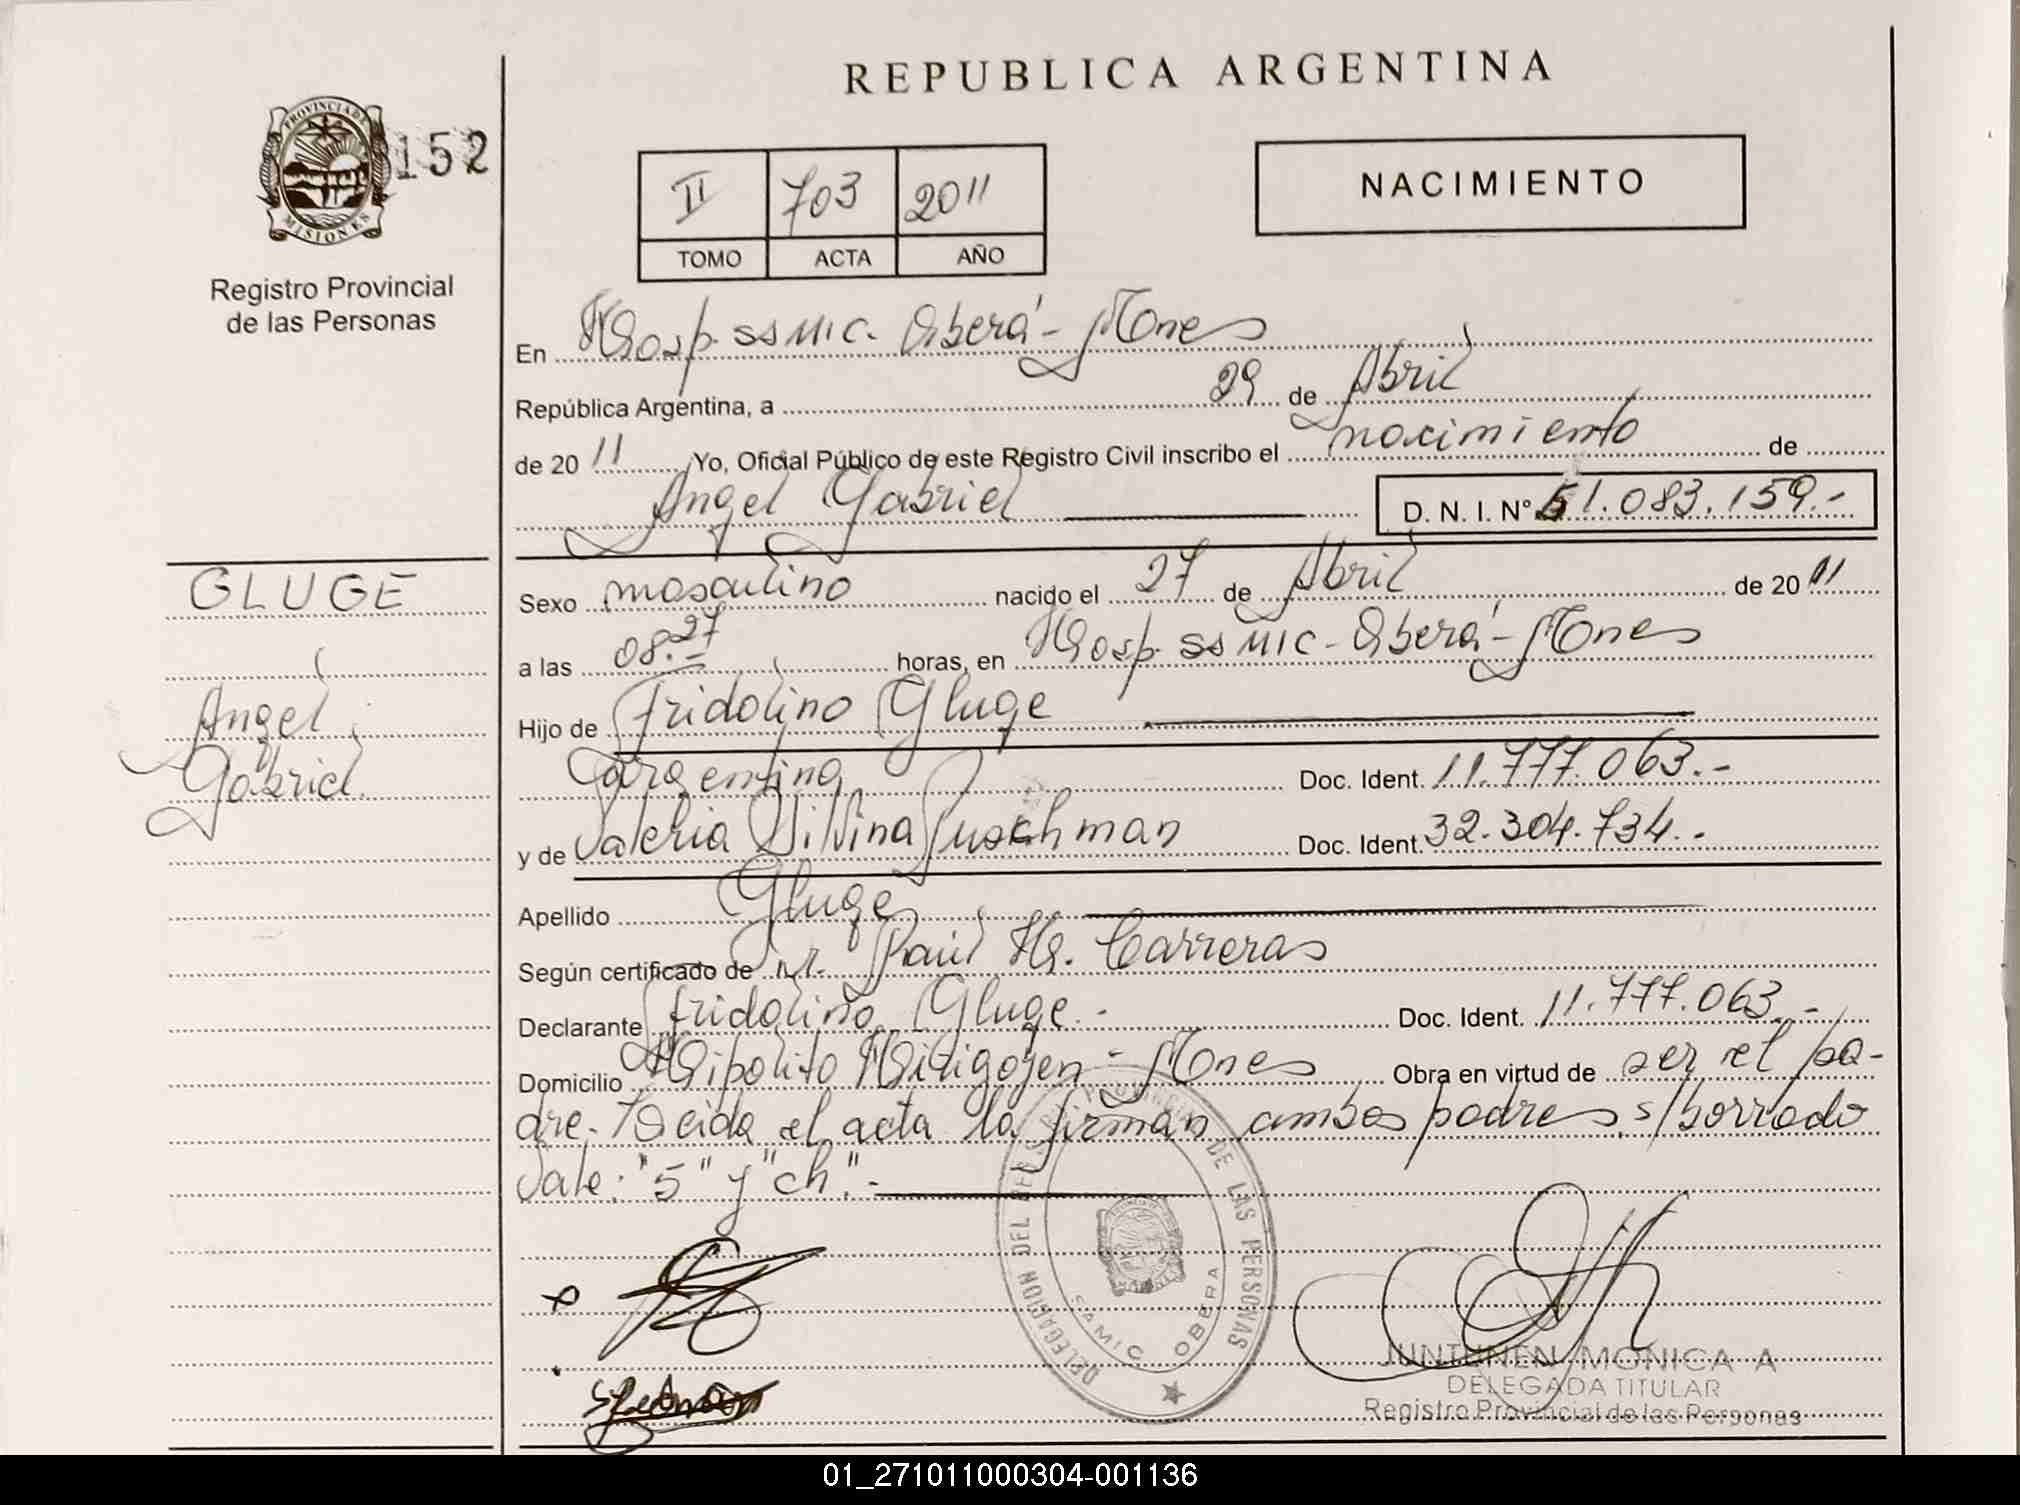 REPUBLICA ARGENTINA
PROVINCIA DE
MISIONES
152
Registro Provincial
de las Personas
II 703 2011
TOMO ACTA AÑO
NACIMIENTO
En Hosp. SSMIC. Oberá - Mnes
República Argentina, a 29 de Abril
de 2011 Yo, Oficial Público de este Registro Civil inscribo el nacimiento de
Angel Gabriel D. N. I. Nº 51.083.159.-
GLUGE
Angel
Gabriel
Sexo masculino nacido el 27 de Abril de 2011
a las 08.27 horas, en Hosp. SSMIC - Oberá - Mnes
Hijo de Fridolino Gluge
argentina Doc. Ident. 11.777.063.-
y de Valeria Silvina Puschman Doc. Ident. 32.304.734.-
Apellido Gluge
Según certificado de Dr. Raúl H. Carreras
Declarante Fridolino Gluge.- Doc. Ident. 11.777.063.-
Domicilio Hipolito Hirigoyen - Mnes Obra en virtud de ser el pa-
dre. Leida el acta la firman ambos padres s/borrado
Vale: "5" y "ch".-
DELEGACION DEL REGISTRO PROVINCIAL DE LAS PERSONAS
SAMIC OBERA
JUNTUNEN MONICA A
DELEGADA TITULAR
Registro Provincial de las Personas
01_271011000304-001136